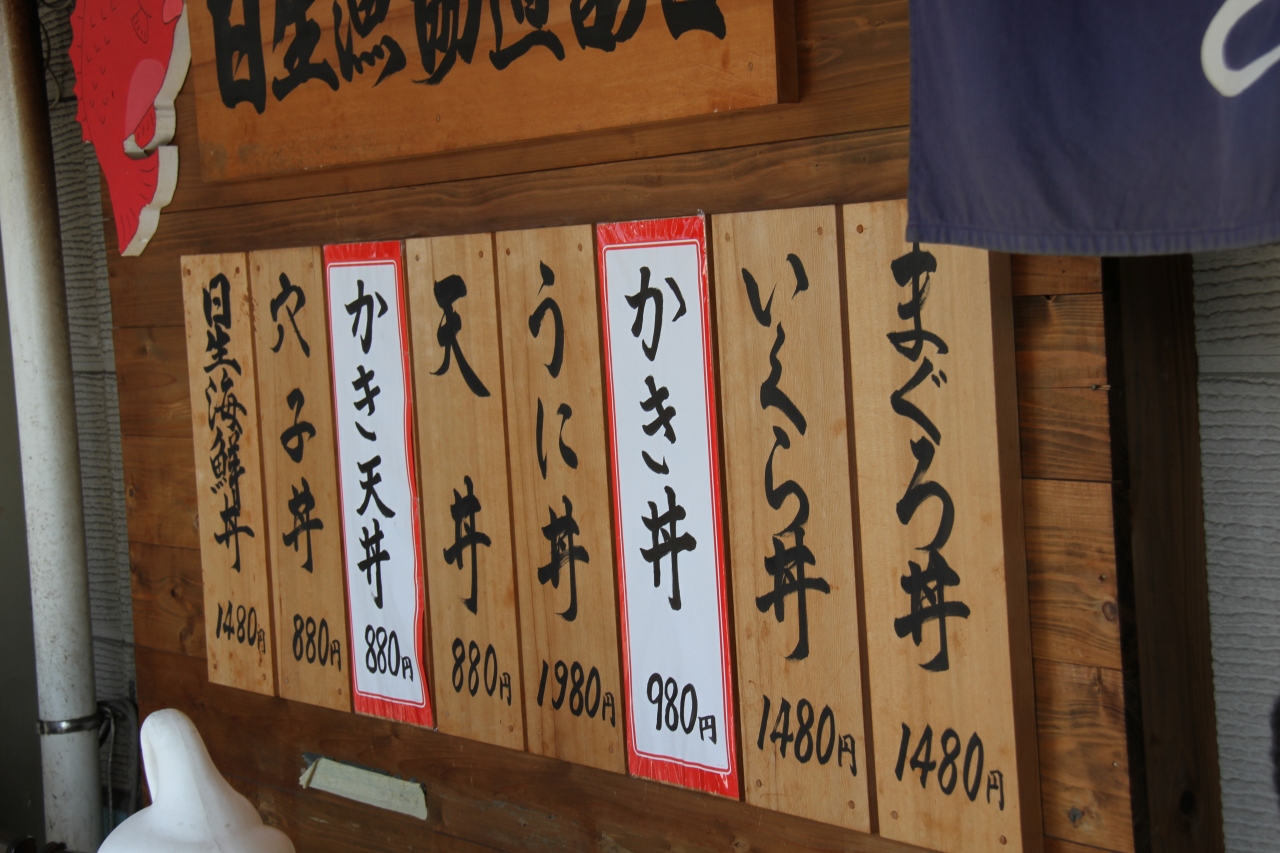 日生漁協直
まぐろ丼 1480円
いくら丼 1480円
かき丼 980円
うに丼 1980円
天丼 880円
かき天丼 880円
穴子丼 880円
日生海鮮丼 1480円